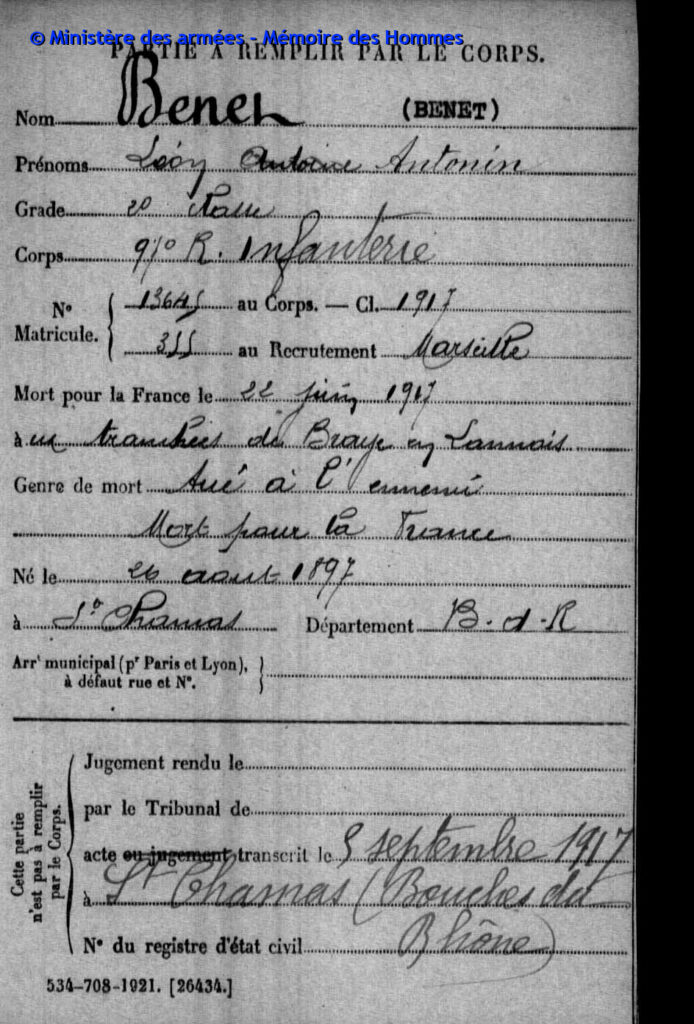 © Ministère des armées - Mémoire des Hommes
PARTIE À REMPLIR PAR LE CORPS.
Nom Benet (BENET)
Prénoms Léon Antoine Antonin
Grade 2e classe
Corps 97e R. Infanterie
N° Matricule. 13645 au Corps. — Cl. 1917
355 au Recrutement Marseille
Mort pour la France le 22 juin 1917
à aux tranchées de Braye en Lannois
Genre de mort tué à l'ennemi
Mort pour la France
Né le 26 aout 1897
à St Chamas Département B-d-R
Arrt municipal (pr Paris et Lyon),
à défaut rue et N°.
Cette partie n'est pas à remplir par le Corps.
Jugement rendu le
par le Tribunal de
acte ou jugement transcrit le 5 septembre 1917
à St Chamas (Bouches du
Rhône)
N° du registre d'état civil
534-708-1921. [26434.]